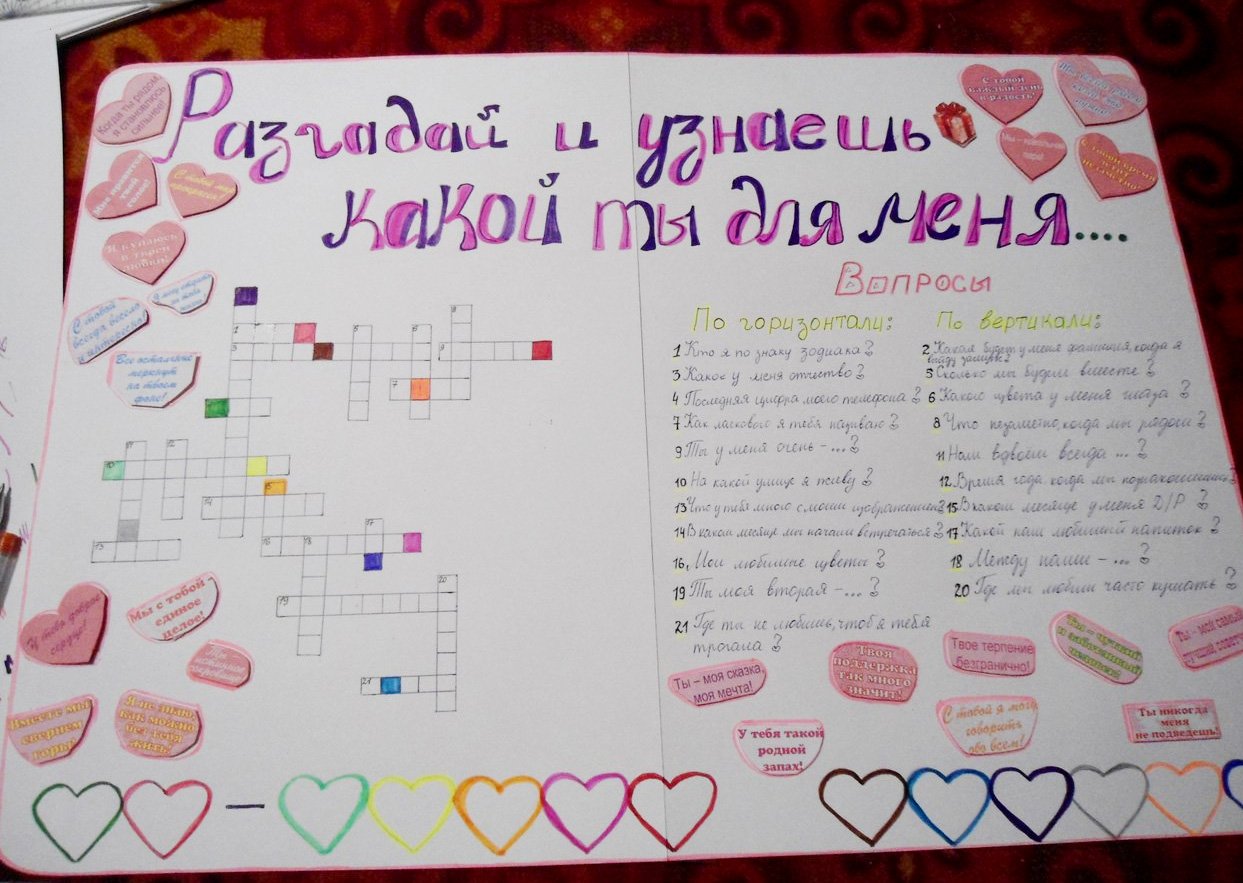 Разгадай и узнаешь
какой ты для меня....
Когда ты рядом,
я становлюсь
сильнее!
Мне нравится
твой
голос!
С тобой мир
прекрасен!
Я купаюсь
в твоей
любви!
С тобой
всегда весело
и интересно!
Все остальные
меркнут
на твоем
фоне!
С тобой
каждый день
в радость!
С тобой время
летит
незаметно!
Вопросы
По горизонтали:
1 Кто я по знаку зодиака?
3 Какое у меня отчество?
4 Последняя цифра моего телефона?
7 Как ласкового я тебя называю?
9 Ты у меня очень -...?
10 На какой улице я живу?
13 Что у тебя много с моим изображением?
14 В каком месяце мы начали встречаться?
16. Мои любимые цветы?
19 Ты моя вторая -...?
21 Где ты не любишь, чтоб я тебя
трогала?
По вертикали:
2 Какая будет у меня фамилия, когда я
выйду замуж?
5 Сколько мы будем вместе?
6 Какого цвета у меня глаза?
8 Что незаметно, когда мы рядом?
11 Нам вдвоем всегда ...?
12 Время года, когда мы познакомились?
15 В каком месяце у меня Д/Р?
17 Какой наш любимый напиток?
18 Между нами -...?
20 Где мы любим часто кушать?
У тебя доброе
сердце!
Мы с тобой
единое
целое!
Ты
истинное
сокровище!
Вместе мы
свернем
горы!
Я не знаю,
как можно
без тебя
жить!
Ты – моя сказка,
моя мечта!
Твоя
поддержка
так много
значит!
Твое терпение
безгранично!
Ты – чуткий
и заботливый
человек!
Ты - мой самый
лучший
У тебя такой
родной
запах!
С тобой я могу
говорить
обо всем!
Ты никогда
меня
не подведешь!